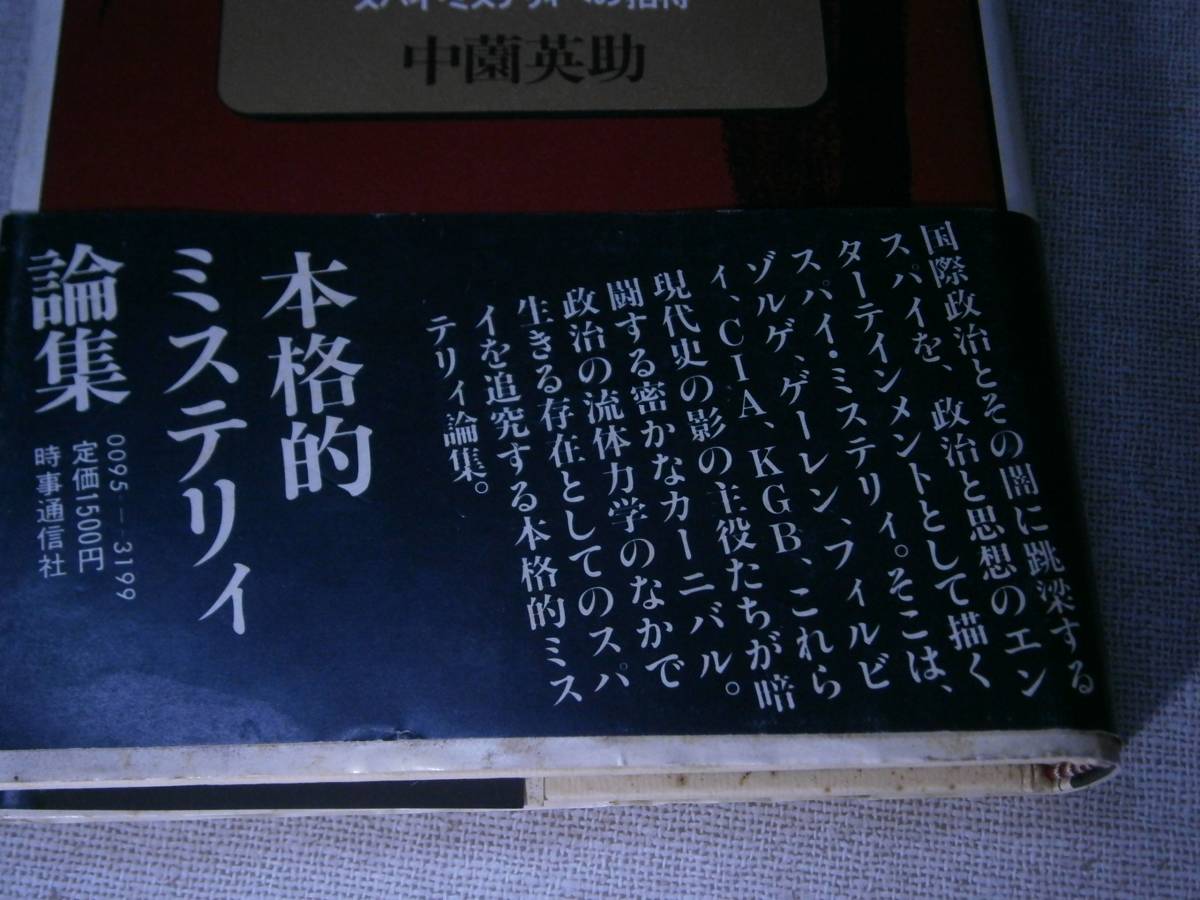 スパイ・ミステリィへの招待
中薗英助
国際政治とその闇に跳梁する
スパイを、政治と思想のエン
ターテインメントとして描く
スパイ・ミステリィ。そこは、
ゾルゲ、ゲーレン、フィルビ
ィ、CIA、KGB、これら
現代史の影の主役たちが暗
闘する密かなカーニバル。
政治の流体力学のなかで
生きる存在としてのスパ
イを追究する本格的ミス
テリィ論集。
本格的
ミステリィ
論集
0095-3199
定価1500円
時事通信社